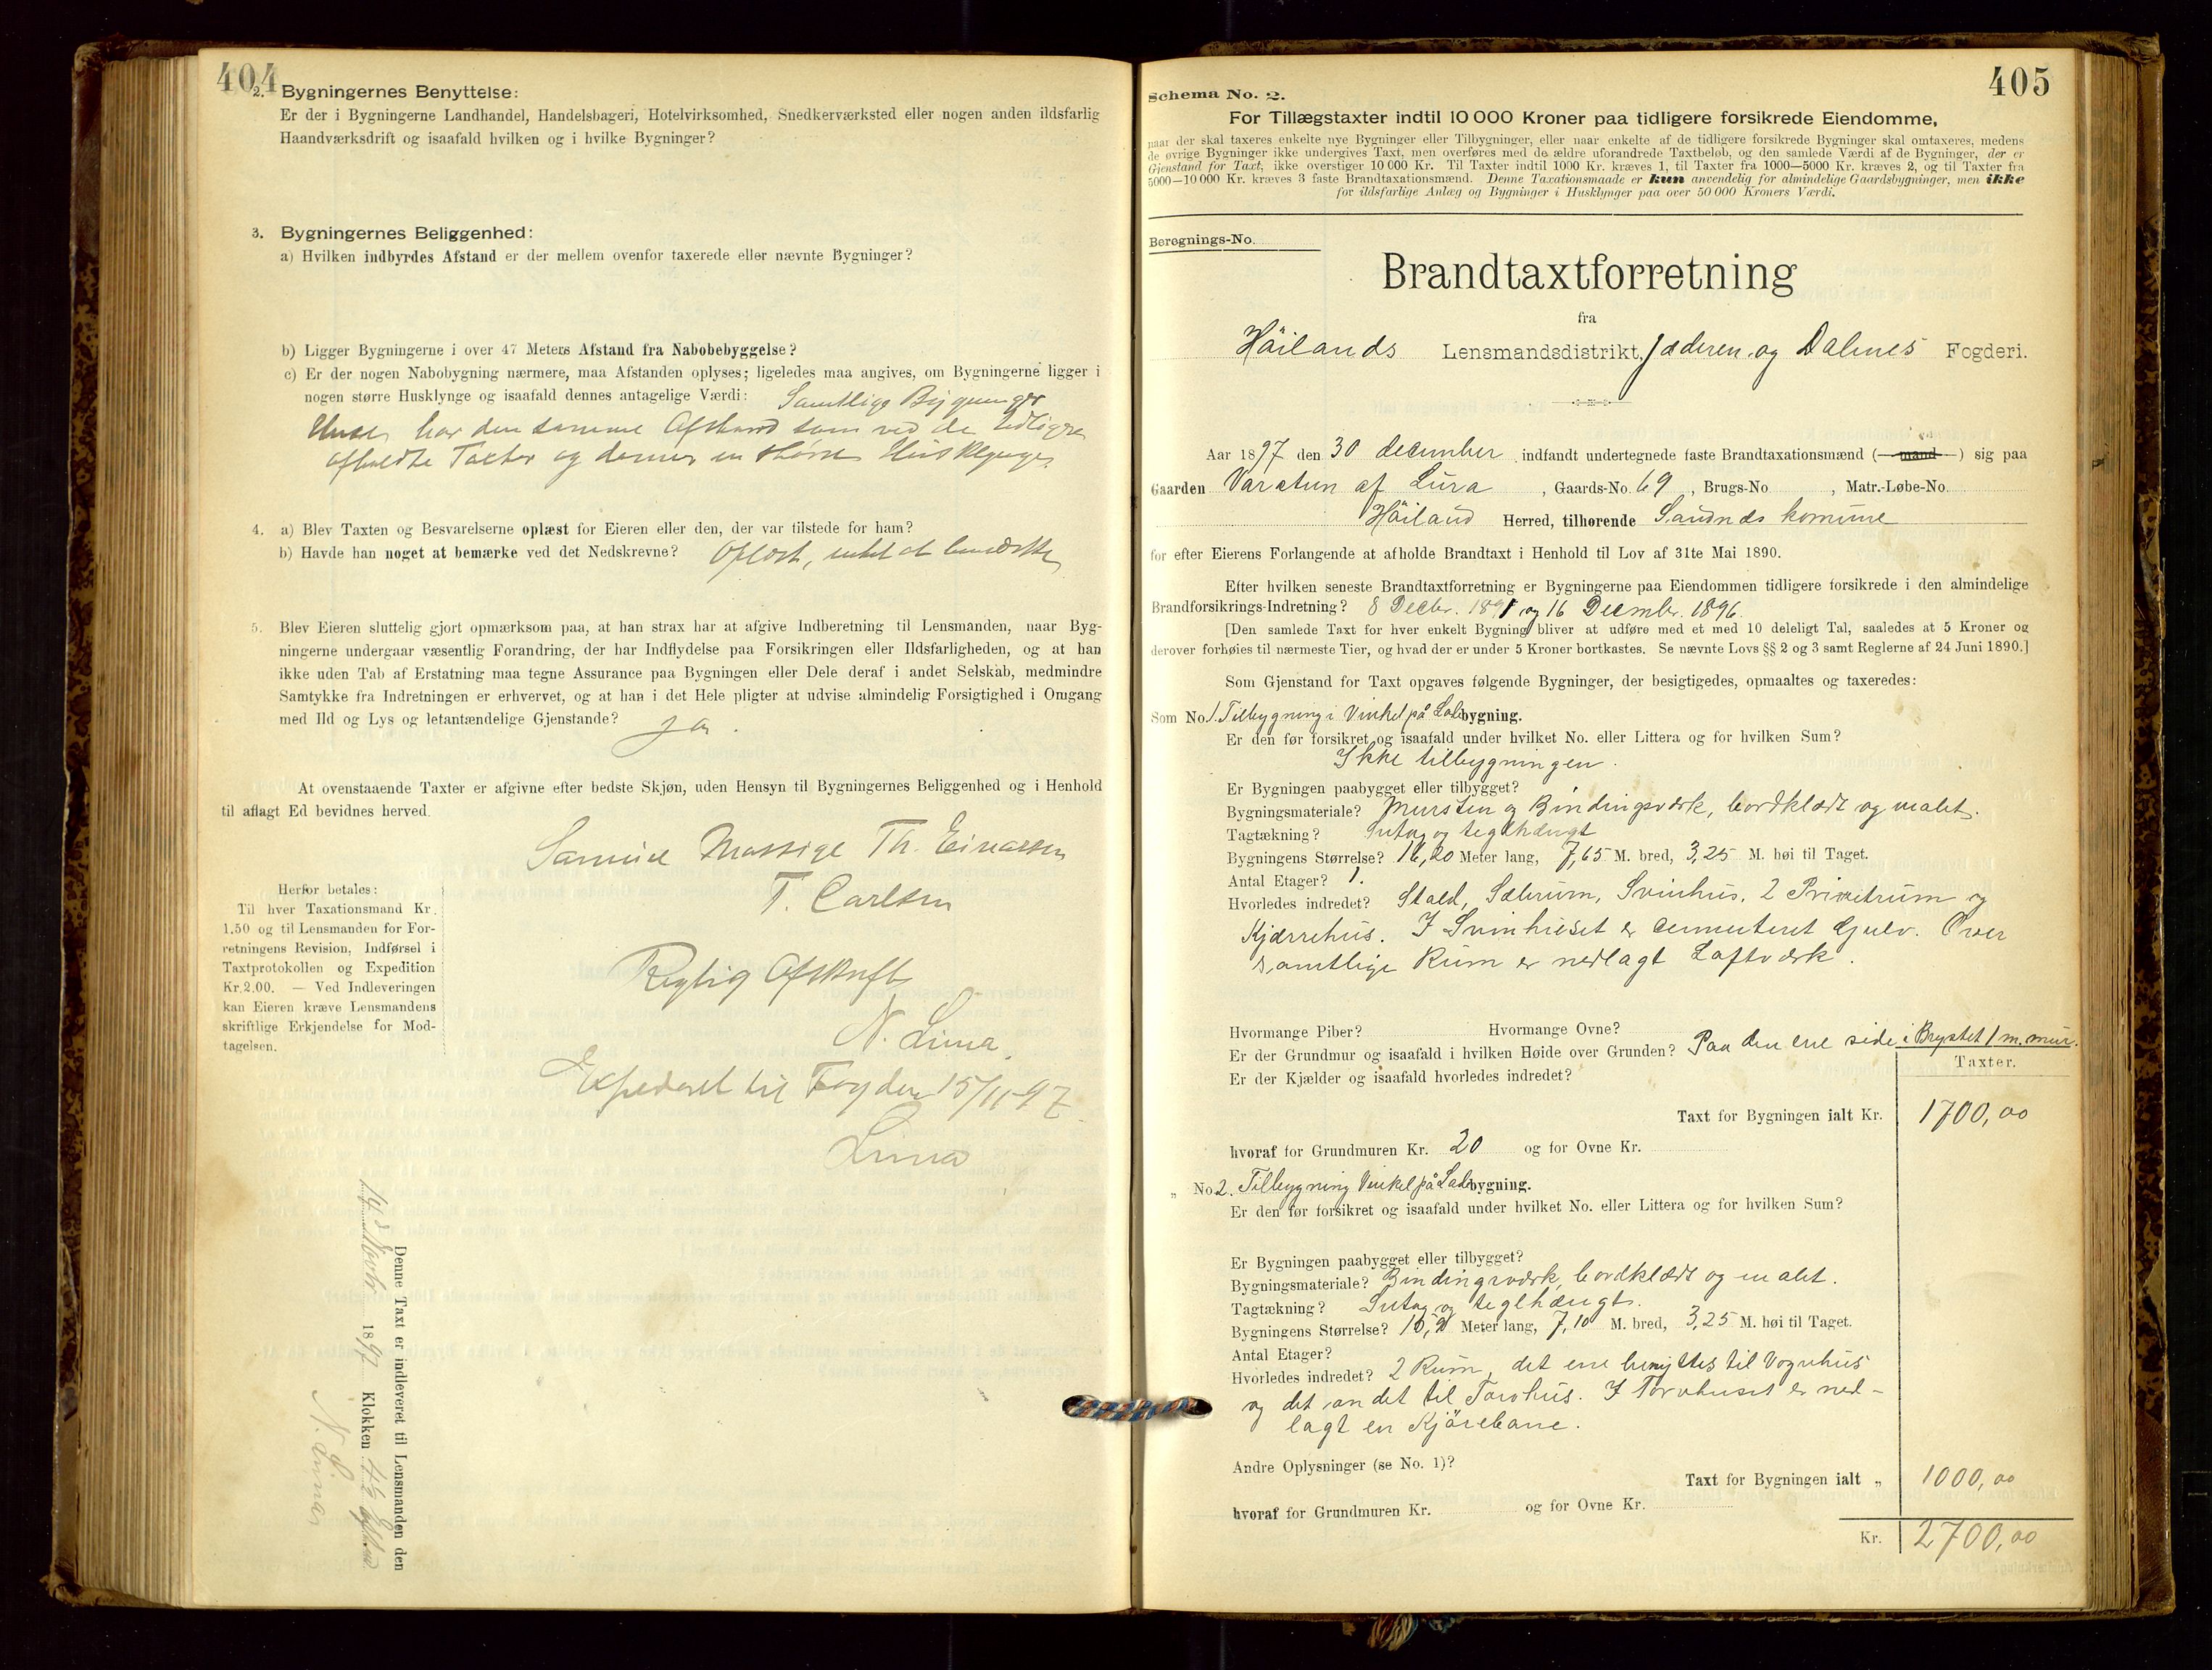 404
2. Bygningernes Benyttelse:
Er der i Bygningerne Landhandel, Handelsbageri, Hotelvirksomhed, Snedkerværksted eller nogen anden ildsfarlig
Haandværksdrift og isaafald hvilken og i hvilke Bygninger?
3. Bygningernes Beliggenhed:
a) Hvilken indbyrdes Afstand er der mellem ovenfor taxerede eller nævnte Bygninger?
b) Ligger Bygningerne i over 47 Meters Afstand fra Nabobebyggelse?
c) Er der nogen Nabobygning nærmere, maa Afstanden oplyses; ligeledes maa angives, om Bygningerne ligger i
nogen større Husklynge og isaafald dennes antagelige Værdi: Samtlige Bygninger
har den samme Afstand som ved de tidligere
afholdte Taxter og danner en større Husklynge
4. a) Blev Taxten og Besvarelserne oplæst for Eieren eller den, der var tilstede for ham?
b) Havde han noget at bemærke ved det Nedskrevne? Oplæst, intet at bemærke
5. Blev Eieren sluttelig gjort opmærksom paa, at han strax har at afgive Indberetning til Lensmanden, naar Byg-
ningerne undergaar væsentlig Forandring, der har Indflydelse paa Forsikringen eller Ildsfarligheden, og at han
ikke uden Tab af Erstatning maa tegne Assurance paa Bygningen eller Dele deraf i andet Selskab, medmindre
Samtykke fra Indretningen er erhvervet, og at han i det Hele pligter at udvise almindelig Forsigtighed i Omgang
med Ild og Lys og letantændelige Gjenstande? Ja.
At ovenstaaende Taxter er afgivne efter bedste Skjøn, uden Hensyn til Bygningernes Beliggenhed og i Henhold
til aflagt Ed bevidnes herved.
Samuel Th. Einarsen
T. Carlsen
Herfor betales:
Til hver Taxationsmand Kr.
1.50 og til Lensmanden for For-
retningens Revision, Indførsel i
Taxtprotokollen og Expedition
Kr. 2.00. — Ved Indleveringen
kan Eieren kræve Lensmandens
skriftlige Erkjendelse for Mod-
tagelsen.
Rigtig Afskrift
N. Lima.
Expederet til Fogden 15/11-97.
Lima
Denne Taxt er indleveret til Lensmanden den
14 Novbr. 1897 Klokken 4½ Efterm
N. Lima
405
Schema No. 2.
For Tillægstaxter indtil 10 000 Kroner paa tidligere forsikrede Eiendomme,
naar der skal taxeres enkelte nye Bygninger eller Tilbygninger, eller naar enkelte af de tidligere forsikrede Bygninger skal omtaxeres, medens
de øvrige Bygninger ikke undergives Taxt, men overføres med de ældre uforandrede Taxtbeløb, og den samlede Værdi af de Bygninger, der er
Gjenstand for Taxt, ikke overstiger 10 000 Kr. Til Taxter indtil 1000 Kr. kræves 1, til Taxter fra 1000—5000 Kr. kræves 2, og til Taxter fra
5000—10 000 Kr. kræves 3 faste Brandtaxationsmænd. Denne Taxationsmaade er kun anvendelig for almindelige Gaardsbygninger, men ikke
for ildsfarlige Anlæg og Bygninger i Husklynger paa over 50 000 Kroners Værdi.
Beregnings-No.
Brandtaxtforretning
fra
Höilands Lensmandsdistrikt, Jæderen og Dalenes Fogderi.
Aar 1897 den 30 december indfandt undertegnede faste Brandtaxationsmænd (mand) sig paa
Gaarden Varatun af Lura, Gaards-No. 69, Brugs-No , Matr.-Løbe-No.
Höiland Herred, tilhørende Sandnæs komune
for efter Eierens Forlangende at afholde Brandtaxt i Henhold til Lov af 31te Mai 1890.
Efter hvilken seneste Brandtaxtforretning er Bygningerne paa Eiendommen tidligere forsikrede i den almindelige
Brandforsikrings-Indretning? 8 Decbr. 1891 og 16 Decembr. 1896.
[Den samlede Taxt for hver enkelt Bygning bliver at udføre med et med 10 deleligt Tal, saaledes at 5 Kroner og
derover forhøies til nærmeste Tier, og hvad der er under 5 Kroner bortkastes. Se nævnte Lovs §§ 2 og 3 samt Reglerne af 24 Juni 1890.]
Som Gjenstand for Taxt opgaves følgende Bygninger, der besigtigedes, opmaaltes og taxeredes:
Som No 1. Tilbygning i Vinkel på Ladebygning.
Er den før forsikret og isaafald under hvilket No. eller Littera og for hvilken Sum?
Ikke tilbygningen.
Er Bygningen paabygget eller tilbygget?
Bygningsmateriale? Mursten og Bindingsværk, bordklædt og malet.
Tagtækning? Sutag og teglhængt
Bygningens Størrelse? 16,20 Meter lang, 7,65 M. bred, 3,25 M. høi til Taget.
Antal Etager? 1.
Hvorledes indredet? Stald, Sælerum, Svinhus, 2 Privetrum og
Kjærrehus. I Svinhuset er cementeret Gulv. Over
samtlige Rum er nedlagt Loftværk.
Hvormange Piber? Hvormange Ovne?
Er der Grundmur og isaafald i hvilken Høide over Grunden? Paa den ene side i Brystet 1 m. mur.
Er der Kjælder og isaafald hvorledes indredet?
Taxter.
Taxt for Bygningen ialt Kr. 1700,00
hvoraf for Grundmuren Kr. 20 og for Ovne Kr.
„ No 2. Tilbygning Vinkel på Ladebygning.
Er den før forsikret og isaafald under hvilket No. eller Littera og for hvilken Sum?
Er Bygningen paabygget eller tilbygget?
Bygningsmateriale? Bindingsværk, bordklædt og malet.
Tagtækning? Sutag og teglhængt.
Bygningens Størrelse? Meter lang, 7,10 M. bred, 3,25 M. høi til Taget.
Antal Etager?
Hvorledes indredet? 2 Rum, det ene benyttes til Vognhus
og det andet til Torvhus. I Torvhuset er ned-
lagt en Kjörebane.
Andre Oplysninger (se No. 1)?
Taxt for Bygningen ialt „ 1000,00
hvoraf for Grundmuren Kr. og for Ovne Kr.
Kr. 2700,00